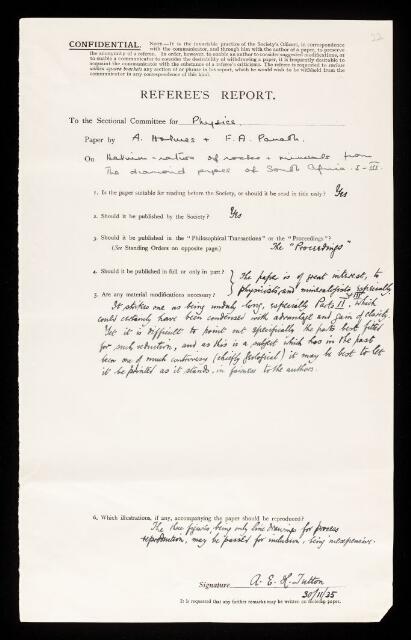 22
CONFIDENTIAL. NOTE.—It is the invariable practice of the Society's Officers, in correspondence
with the communicator, and through him with the author of a paper, to preserve
the anonymity of a referee. In order, however, to enable an author to consider suggested modifications, or
to enable a communicator to consider the desirability of withdrawing a paper, it is frequently desirable to
acquaint the communicator with the substance of a referee's criticisms. The referee is requested to enclose
within square brackets any section of or phrase in his report, which he would wish to be withheld from the
communicator in any correspondence of this kind.
REFEREE'S REPORT.
To the Sectional Committee for Physics.
Paper by A. Holmes + F.A. Paneth.
On Helium-ratios of rocks + minerals from
The diamond pipes of South Africa. I-III.
1. Is the paper suitable for reading before the Society, or should it be read in title only? Yes
2. Should it be published by the Society? Yes
3. Should it be published in the "Philosophical Transactions" or the "Proceedings"?
(See Standing Orders on opposite page.) The "Proceedings"
4. Should it be published in full or only in part?
5. Are any material modifications necessary?
The paper is of great interest, to
physicists, and mineralogists especially.
It strikes one as being unduly long, especially Parts II + III, which
could certainly have been condensed with advantage and gain of clarity.
Yet it is difficult to point out specifically the parts best fitted
for such reduction, and as this is a subject which has in the past
been one of much controversy (chiefly geological) it may be best to let
it be printed as it stands, in fairness to the authors.
6. Which illustrations, if any, accompanying the paper should be reproduced?
The three figures, being only line drawings for process
reproduction, may be passed for inclusion, being inexpensive.
Signature A. E. H. Tutton
30/11/35
It is requested that any further remarks may be written on following paper.